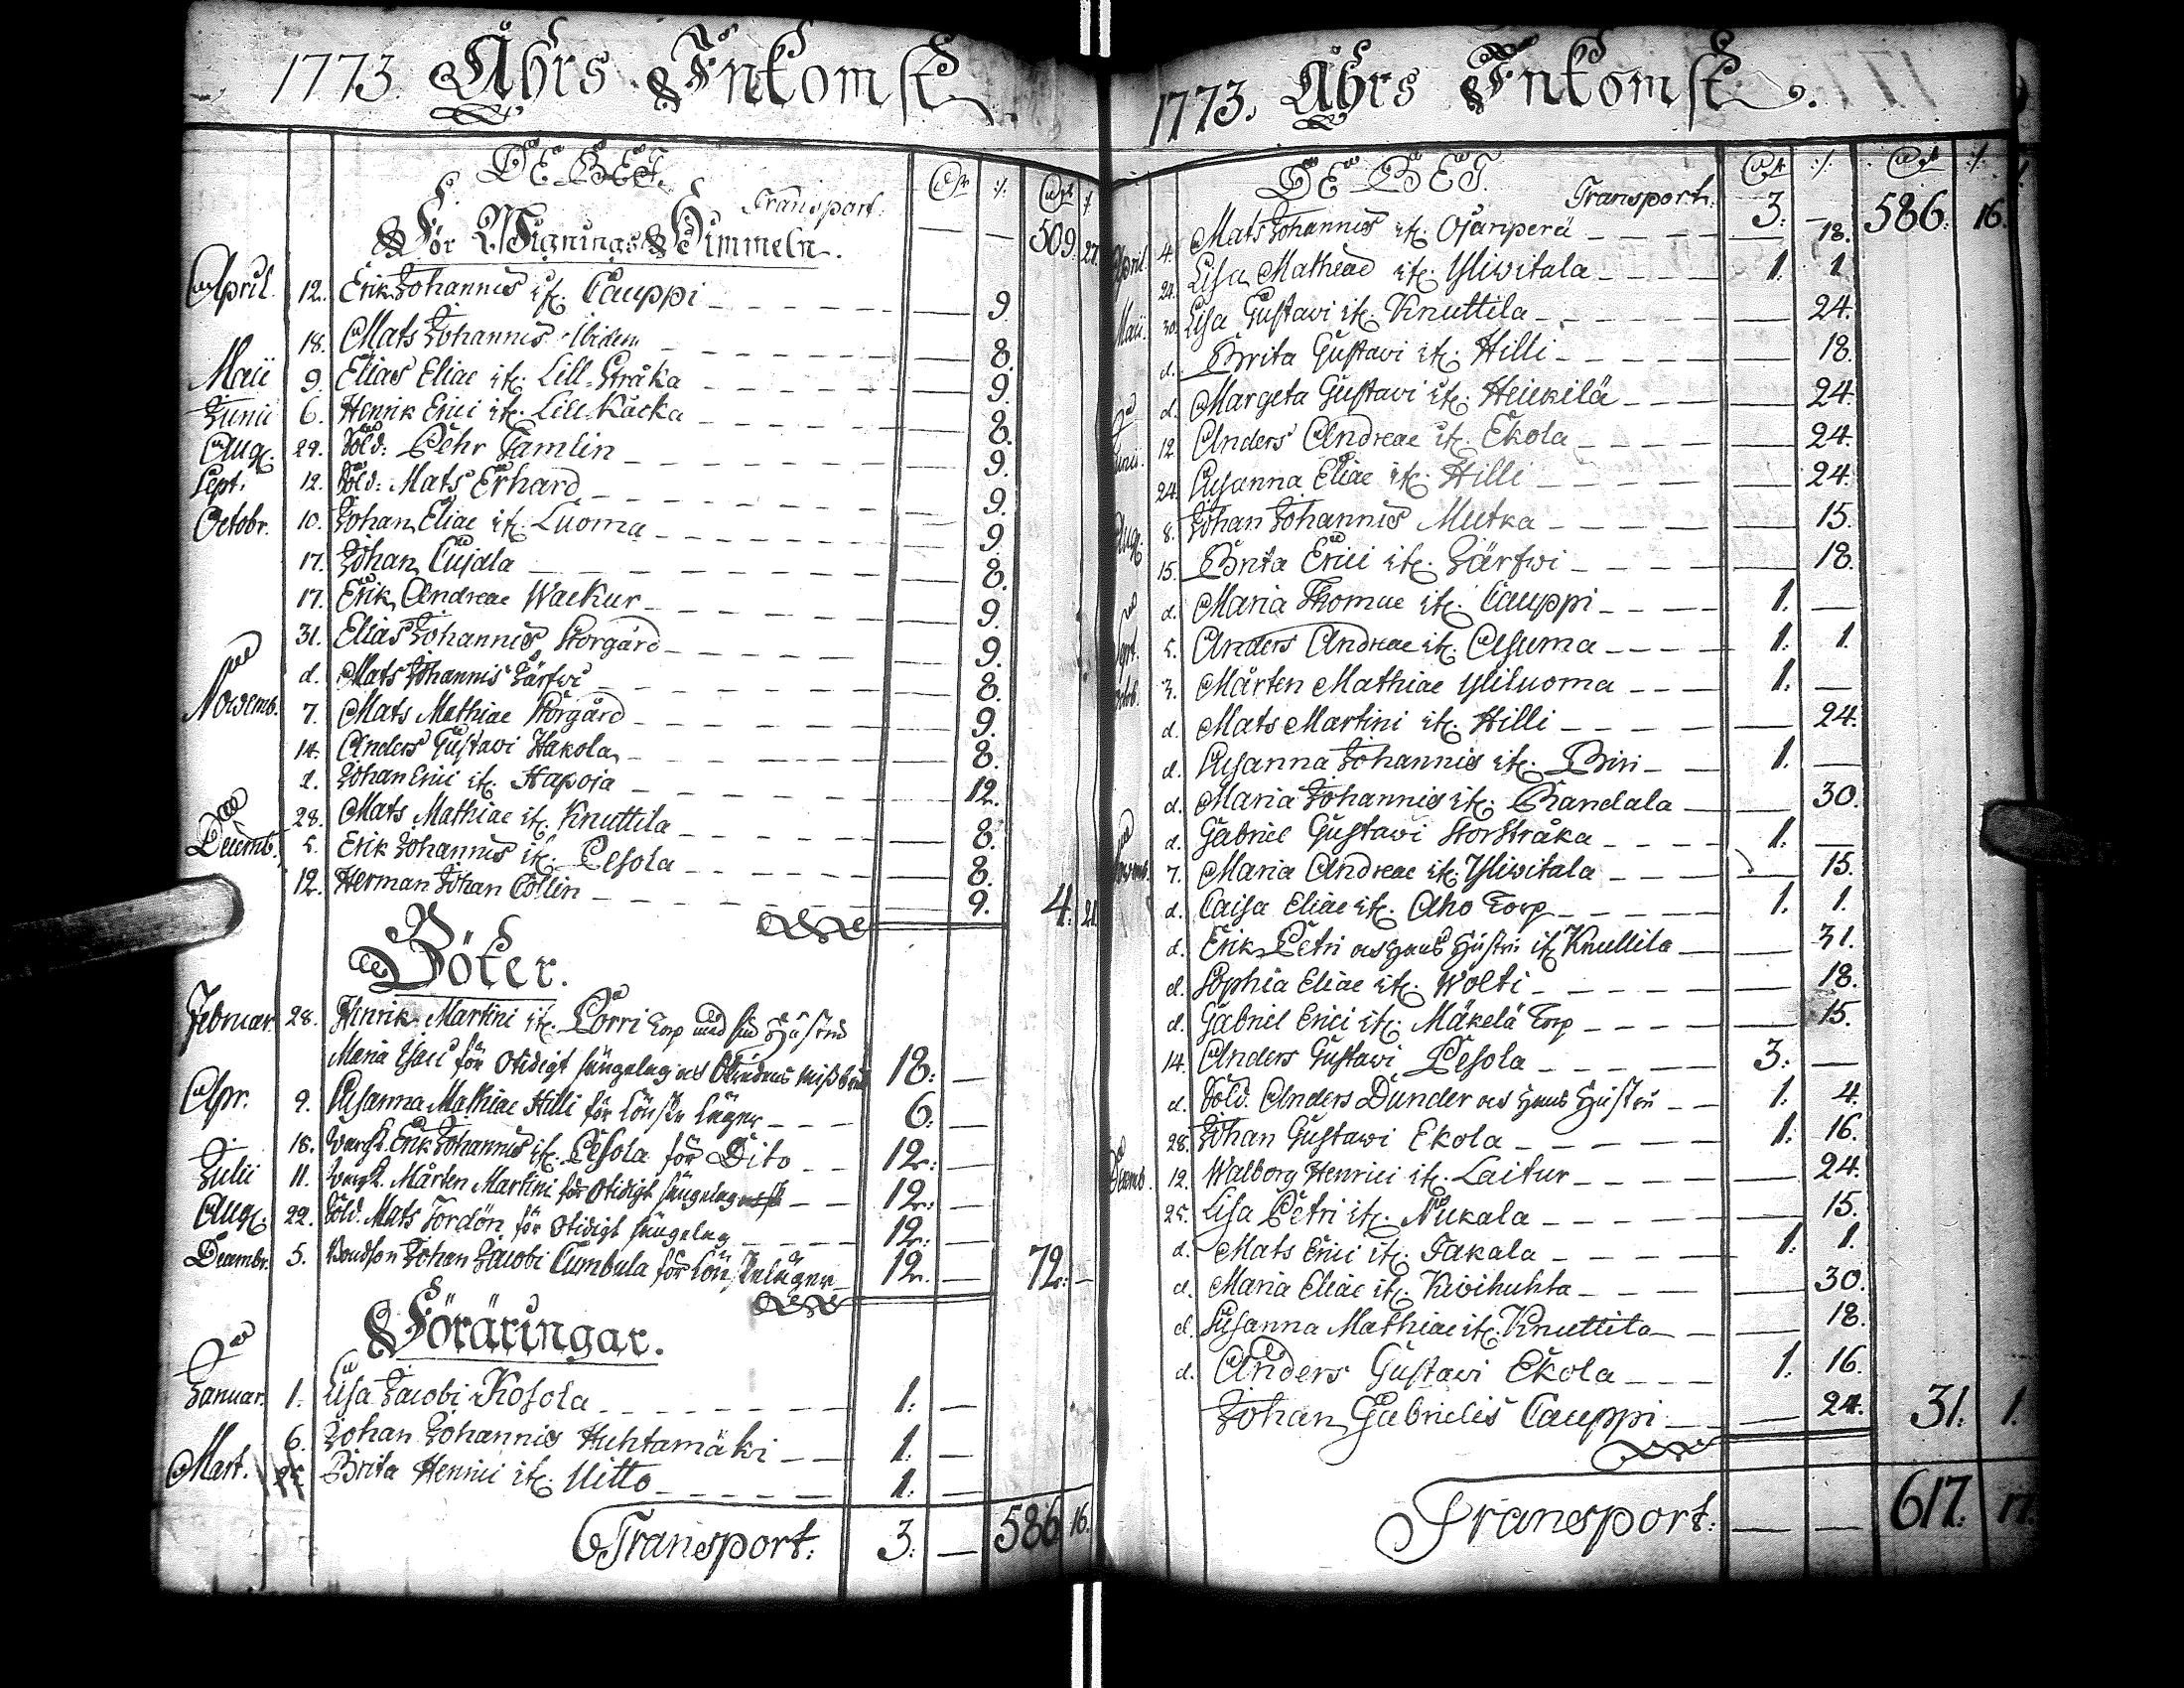 1773. Åhrs Inkomst
DEBET.
Transport. — — 509. 27.
För Wignings Himmeln.
April. 12. Erik Johannis if. Cauppi — 9.
18. Mats Johannis ibidem — 8.
Maii 9. Elias Eliae if. Lill-Stråka — 9.
Junii 6. Henrik Erici if. Lill Kacka — 8.
Aug. 29. Sold: Pehr Gamlin — 9.
Sept. 12. Sold: Mats Erhard — 9.
Octobr. 10. Johan Eliae if. Luoma — 9.
17. Johan Cujala — 8.
17. Erik Andreae Wackur — 9.
31. Elias Johannis Storgård — 9.
d. Mats Johannis Järfwi — 8.
Novemb. 7. Mats Mathiae Storgård — 9.
14. Anders Gustavi Hakola — 8.
d. Johan Erici if. Hapoja — 12.
28. Mats Mathiae if. Knuttila — 8.
Decemb. 5. Erik Johannis if. Pesola — 8.
12. Herman Johan Collin — 9. 4. 21.
Böter.
Februar. 28. Henrik Martini if. Porri Torp med sin Hustru
Maria Esaci för Otidigt sängelag och missbruk 18: —
Apr. 9. Susanna Mathiae Hilli för Lönske Läger — 6: —
18. Erik Johannis if. Pesola för Dito — 12: —
Julii 11. Mårten Martini för Otidigt sängelag — 12: —
Aug. 22. Sold. Mats Fordön för Otidigt sängelag — 12: —
Decembr. 5. Bondson Johan Jacobi Cumbula för Lönskeläger — 12. — 72. —
Föräringar.
Januar. 1. Lisa Jacobi Kosola — 1: —
6. Johan Johannis Huhtamäki — 1: —
Mart. 25. Brita Henrici if. Uitto — 1: —
Transport: 3: — 586 16.
1773. Åhrs Inkomst.
DEBET.
Transport: 3: — 586: 16.
April. 4. Mats Johannis if. Ojanperä — 18.
24. Lisa Matheae if. Yliwitala — 1: 1.
Maii. 30. Lisa Gustavi if. Knuttila — 24.
d. Brita Gustavi if. Hilli — 18.
d. Margeta Gustavi if. Heickilä — 24.
Junii. 12. Anders Andreae if. Ekola — 24.
24. Susanna Eliae if. Hilli — 24.
Aug. 8. Johan Johannis Mutka — 15.
15. Brita Erici if. Järfwi — 18.
d. Maria Thomae if. Cauppi — 1. —
Sept. 5. Anders Andreae if. Asuma — 1: 1.
Octob. 3. Mårten Mathiae Yliluoma — 1: —
d. Mats Martini if. Hilli — 24.
d. Susanna Johannis if. Biri — 1. —
d. Maria Johannis if. Randala — 30.
d. Gabriel Gustavi Storstråka — 1: —
Novemb. 7. Maria Andreae if. Yliwitala — 15.
d. Caisa Eliae if. Aho Torp — 1. 1.
d. Erik Petri och hans Hustru if. Knuttila — 31.
d. Sophia Eliae if. Wolti — 18.
d. Gabriel Erici if. Mäkelä Torp — 15.
14. Anders Gustavi Pesola — 3: —
d. Sold. Anders Dunder och hans Hustru — 1. 4.
28. Johan Gustavi Ekola — 1: 16.
Decemb. 12. Walborg Henrici if. Laitur — 24.
25. Lisa Petri if. Nukala — 15.
d. Mats Erici if. Takala — 1: 1.
d. Maria Eliae if. Kivihuhta — 30.
d. Susanna Mathiae if. Knuttila — 18.
d. Anders Gustavi Ekola — 1: 16.
Johan Gabrielis Cauppi — 24. 31: 1.
Transport: — — 617: 17.